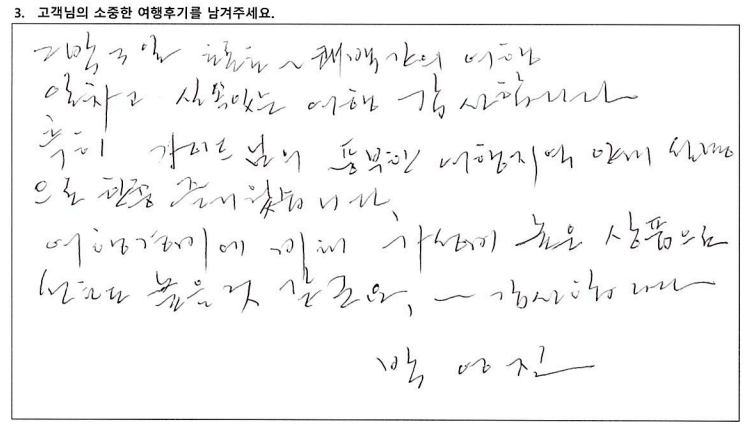 3. 고객님의 소중한 여행후기를 남겨주세요.
2박 3일 토론토~퀘백간의 여행
알차고 실속있는 여행 감사합니다
특히 가이드님의 풍부한 여행지역 안내 설명
으로 한층 즐거웠습니다.
여행경비에 비해 가성비 높은 상품으로
선호도 높을것 같군요, ~ 감사합니다
박영진